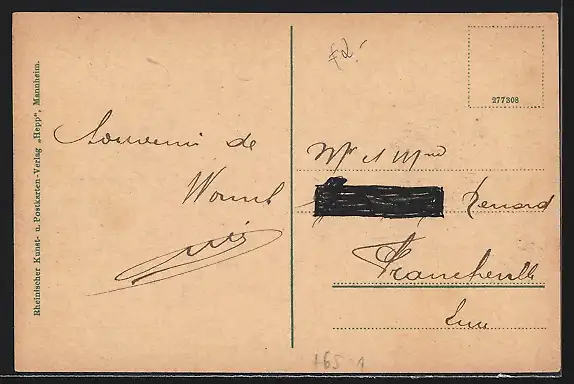 Rheinischer Kunst- u. Postkarten-Verlag „Hepp", Mannheim.
Souvenir de
Worms
277308
Mr et Mme
Renard
Francheville
Eure